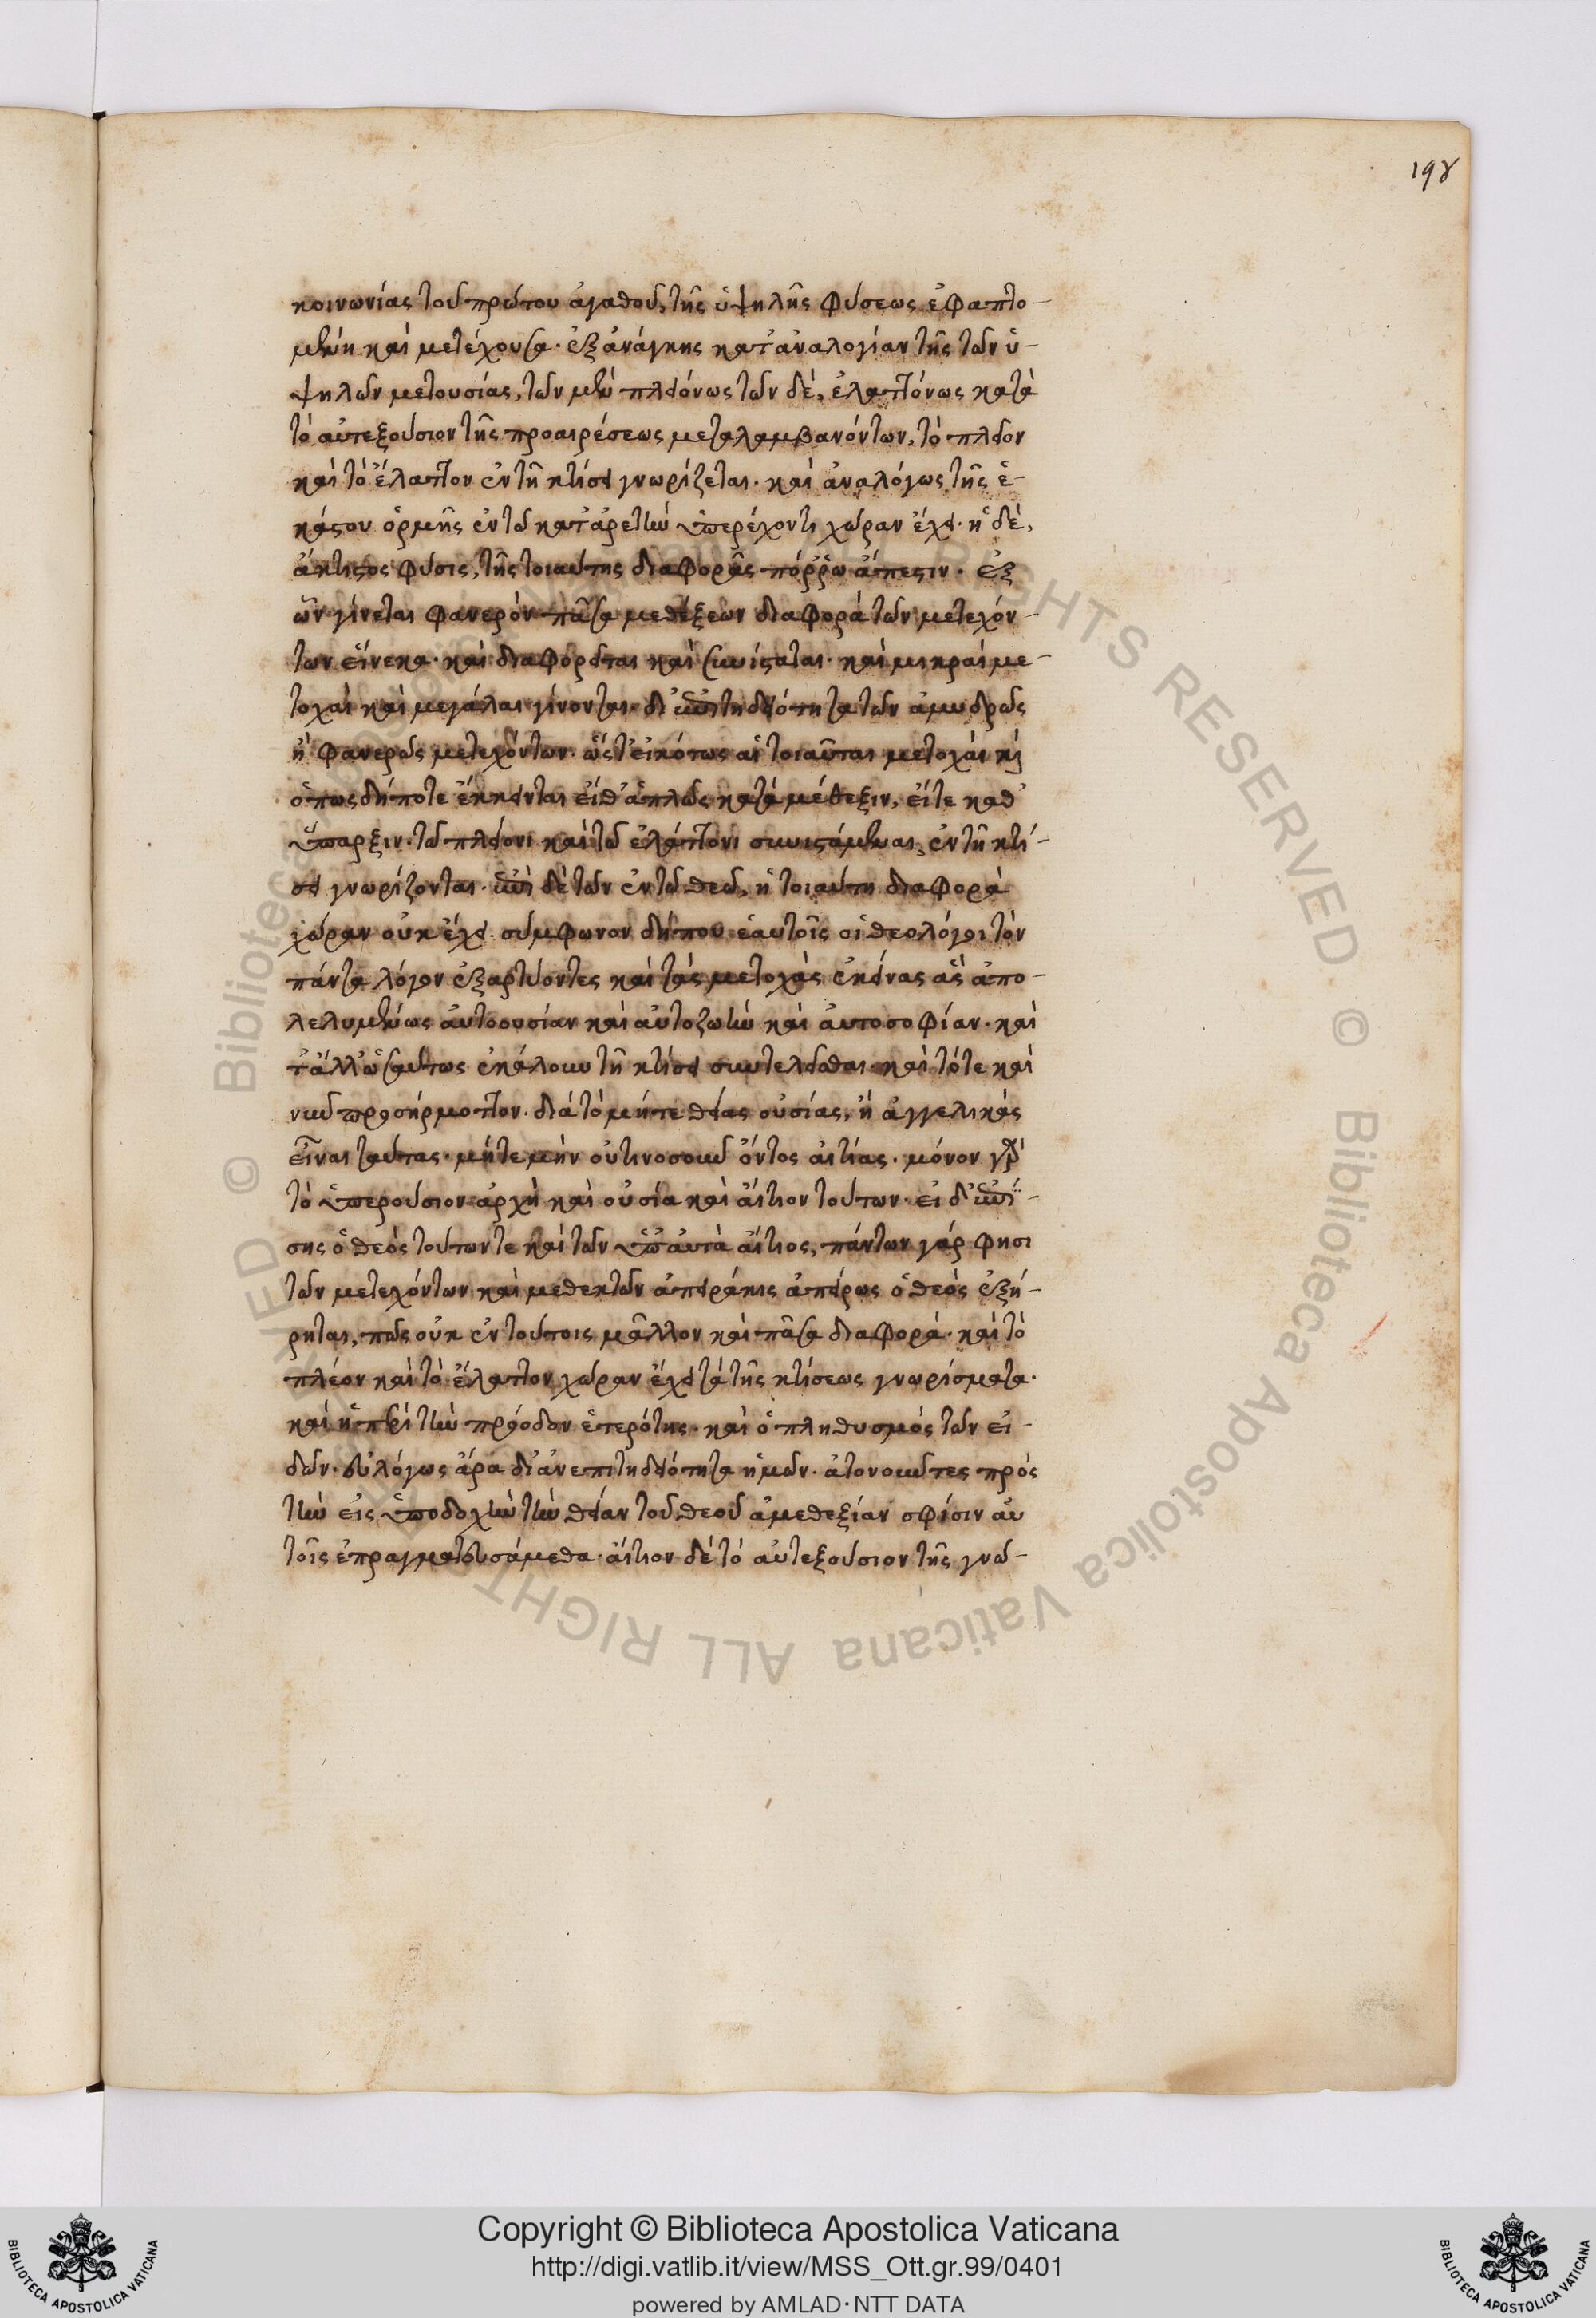 198
κοινωνίας τοῦ πρώτου ἀγαθοῦ, τῆς ὑψηλῆς φύσεως ἐφαπτο-
μένη καὶ μετέχουσα· ἐξ ἀνάγκης κατ' ἀναλογίαν τῆς τῶν ὑ-
ψηλῶν μετουσίας, τῶν μὲν πλειόνως τῶν δὲ, ἐλαττόνως κατὰ
τὸ αὐτεξούσιον τῆς προαιρέσεως μεταλαμβανόντων, τὸ πλεῖον
καὶ τὸ ἔλαττον ἐν τῇ κτίσει γνωρίζεται· καὶ ἀναλόγως τῆς ἑ-
κάστου ὁρμῆς ἐν τῷ κατ' ἀρετὴν ὑπερέχοντι χώραν ἔχει· ἡ δὲ,
ἄκτιστος φύσις, τῆς τοιαύτης διαφορᾶς πόῤῥω ἄπεστιν· ἐξ
ὧν γίνεται φανερὸν πᾶσα μεθέξεων διαφορὰ τῶν μετεχόν-
των εἵνεκα· καὶ διαφορεῖται καὶ συνίσταται· καὶ μικραὶ με-
τοχαὶ καὶ μεγάλαι γίνονται· δι' ἐπιτηδειότητα τῶν ἀμυδρῶς
ἢ φανερῶς μετεχόντων· ὥστ' εἰκότως αἱ τοιαῦται μετοχαὶ καὶ
ὁπωσδήποτε ἔκκεινται εἴθ' ἁπλῶς κατὰ μέθεξιν, εἴτε καθ'
ὕπαρξιν· τῷ πλείονι καὶ τῷ ἐλάττονι συνιστάμεναι, ἐν τῇ κτί-
σει γνωρίζονται· ἐπὶ δὲ τῶν ἐν τῷ θεῷ, ἡ τοιαύτη διαφορὰ
χώραν οὐκ ἔχει· σύμφωνον δήπου ἑαυτοῖς οἱ θεολόγοι τὸν
πάντα λόγον ἐξαρτύοντες καὶ τὰς μετοχὰς ἐκείνας ἃς ἀπο-
λελυμένως αὐτοουσίαν καὶ αὐτοζωὴν καὶ αὐτοσοφίαν· καὶ
τἄλλ' ὡσαύτως ἐκάλουν τῇ κτίσει συντελεῖσθαι· καὶ τότε καὶ
νῦν προσήρμοττον· διὰ τὸ μήτε θείας οὐσίας, ἢ ἀγγελικὰς
εἶναι ταύτας· μήτε μὴν οὑτινοσοῦν ὄντος αἰτίας· μόνον γὰρ
τὸ ὑπερούσιον ἀρχὴ καὶ οὐσία καὶ αἴτιον τούτων· εἰ δ' ἐπί-
σης ὁ θεὸς τούτων τε καὶ τῶν ὑπ' αὐτὰ αἴτιος, πάντων γάρ φησι
τῶν μετεχόντων καὶ μεθεκτῶν ἀπειράκις ἀπείρως ὁ θεὸς ἐξῄ-
ρηται, πῶς οὐκ ἐν τούτοις μᾶλλον καὶ πᾶσα διαφορά· καὶ τὸ
πλέον καὶ τὸ ἔλαττον χώραν ἔχει τὰ τῆς κτίσεως γνωρίσματα·
καὶ ἡ περὶ τὴν πρόοδον ἑτερότης· καὶ ὁ πληθυσμὸς τῶν εἰ-
δῶν· εὐλόγως ἄρα δι' ἀνεπιτηδειότητα ἡμῶν· ἀτονοῦντες πρὸς
τὴν εἰς ὑποδοχὴν τὴν θείαν τοῦ θεοῦ ἀμεθεξίαν σφίσιν αὐ
τοῖς ἐπραγματευσάμεθα· αἴτιον δὲ τὸ αὐτεξούσιον τῆς γνώ-
© Biblioteca Apostolica Vaticana ALL RIGHTS RESERVED
Copyright © Biblioteca Apostolica Vaticana
http://digi.vatlib.it/view/MSS_Ott.gr.99/0401
powered by AMLAD·NTT DATA
BIBLIOTECA APOSTOLICA VATICANA
BIBLIOTECA APOSTOLICA VATICANA